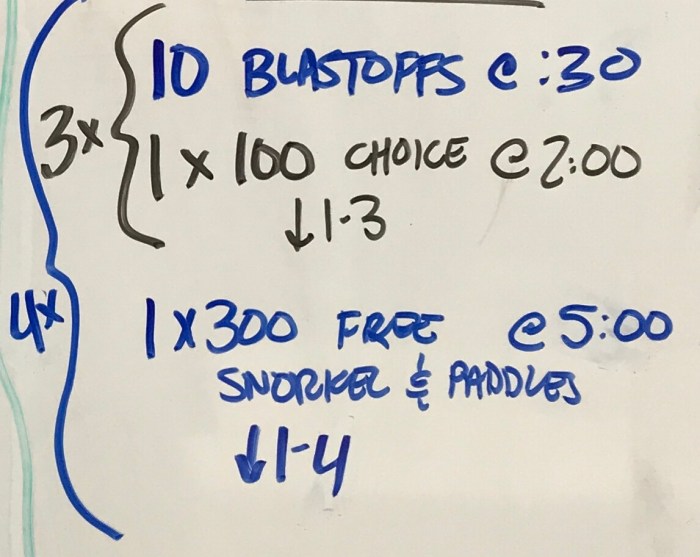 10 BLASTOFFS @ :30
3x
1 x 100 CHOICE @ 2:00
↓1-3
4x
1 x 300 FREE @ 5:00
SNORKEL & PADDLES
↓1-4